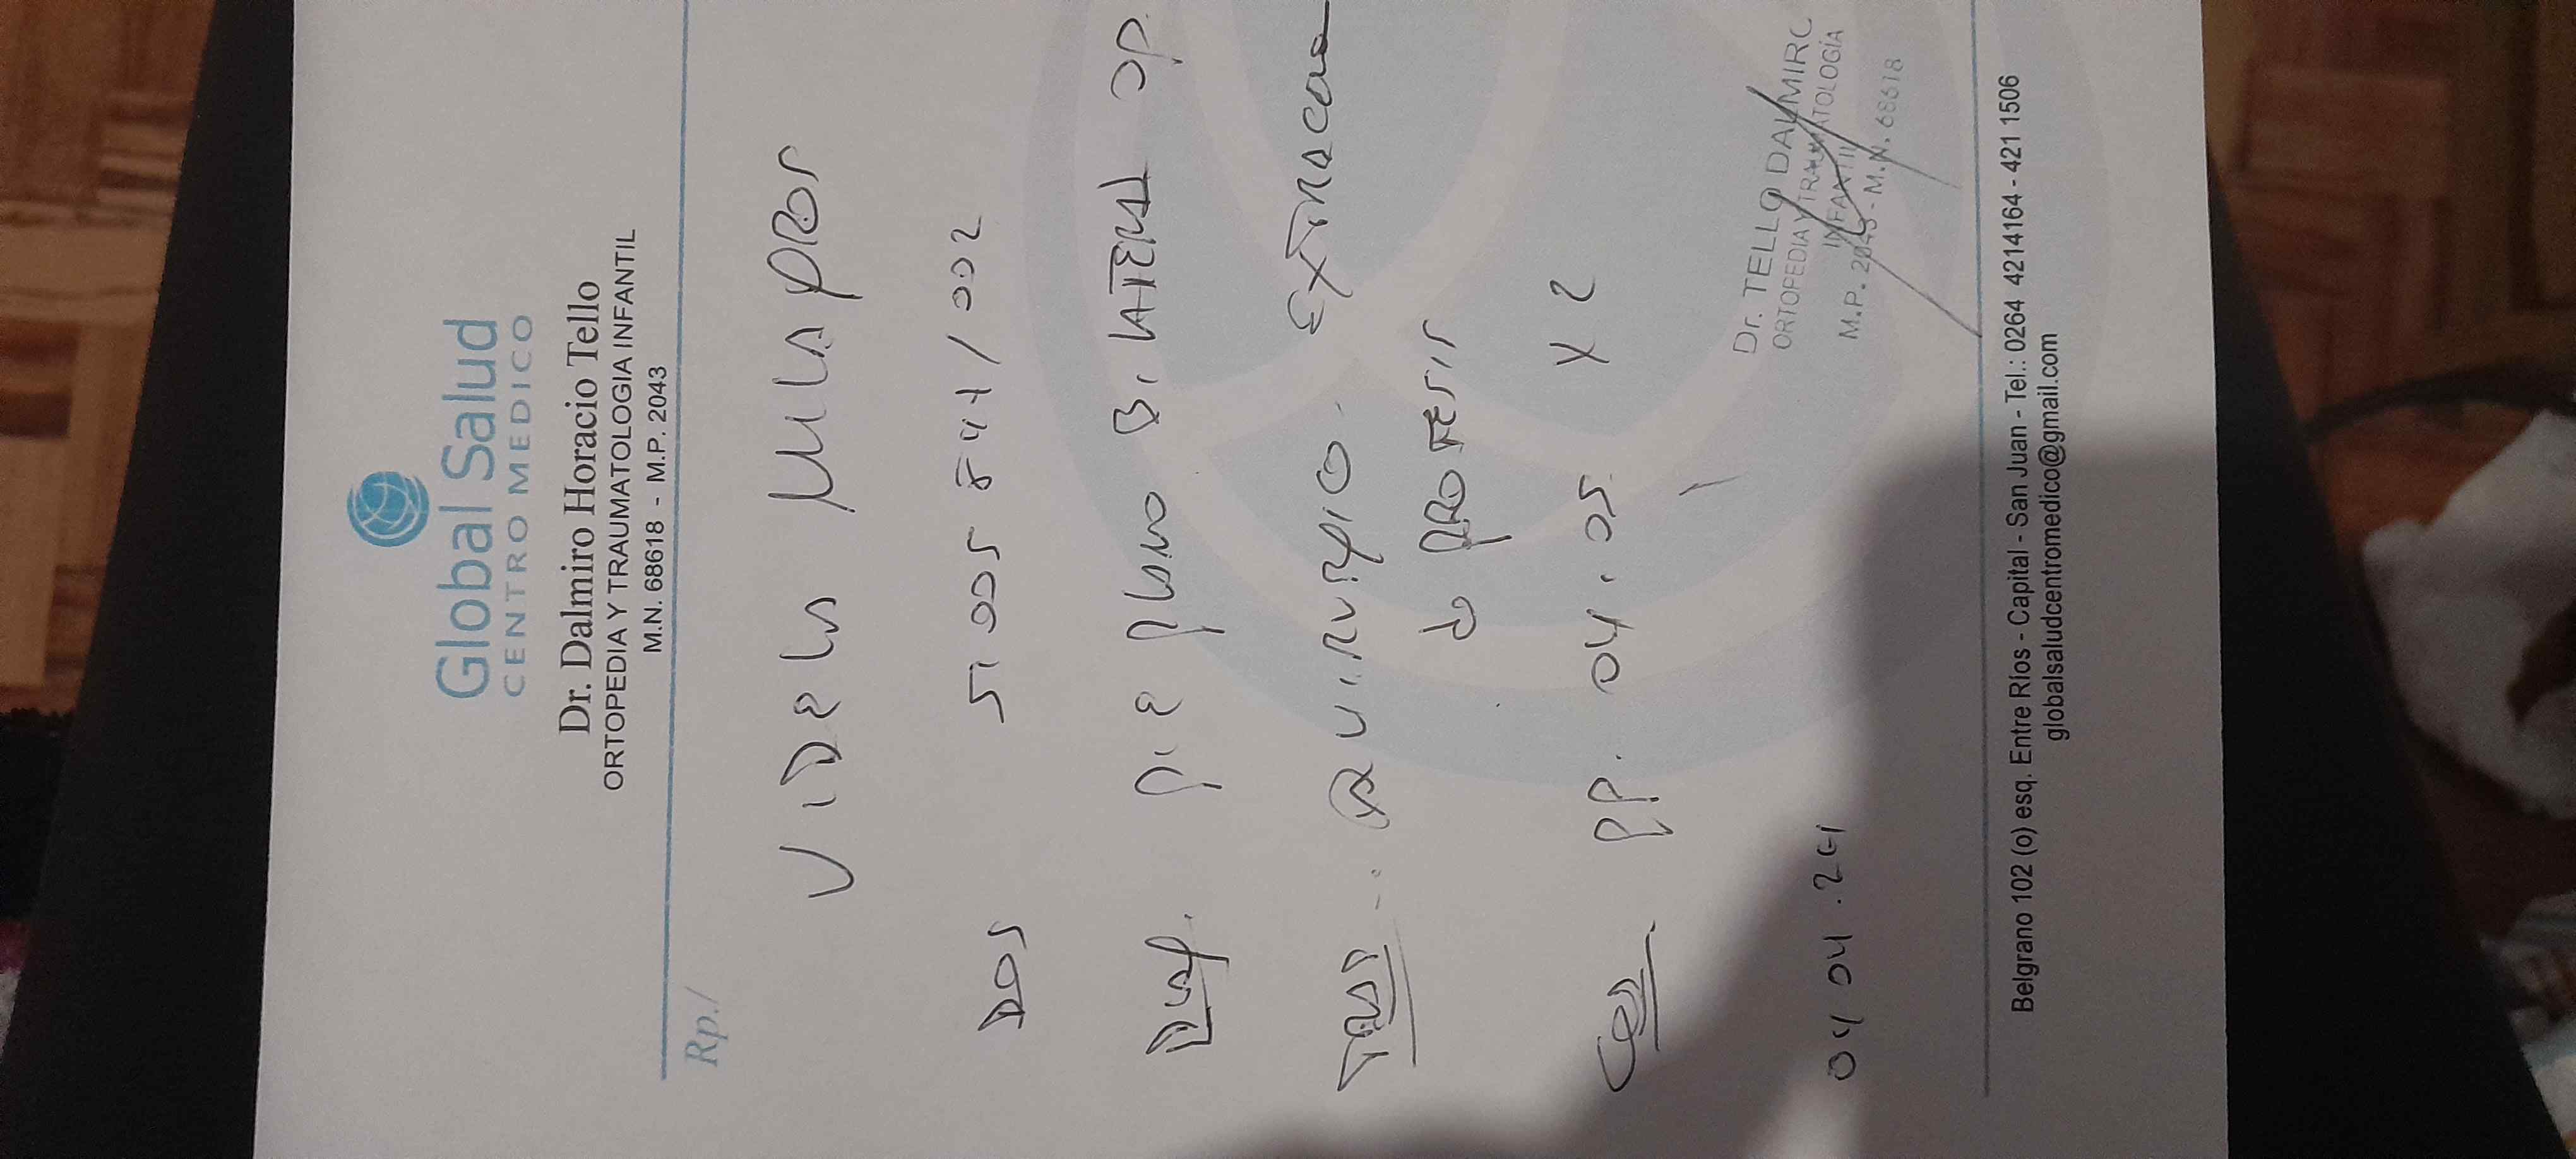 Global Salud
CENTRO MEDICO
Dr. Dalmiro Horacio Tello
ORTOPEDIA Y TRAUMATOLOGIA INFANTIL
M.N. 68618 - M.P. 2043
Rp./
VIDELA MILAGROS
DOS 51 005 841/002
Diag. pie plano BiLATERAL OP.
QUIRURGICO. EXTRACCION
de PROTESIS
Cod PP. 04.05 X 2
04 04 .24
Dr. TELLO DALMIRO
ORTOPEDIA Y TRAUMATOLOGÍA
INFANTIL
M.P. 2043 - M.N. 68618
Belgrano 102 (o) esq. Entre Ríos - Capital - San Juan - Tel.: 0264 4214164 - 421 1506
globalsaludcentromedico@gmail.com